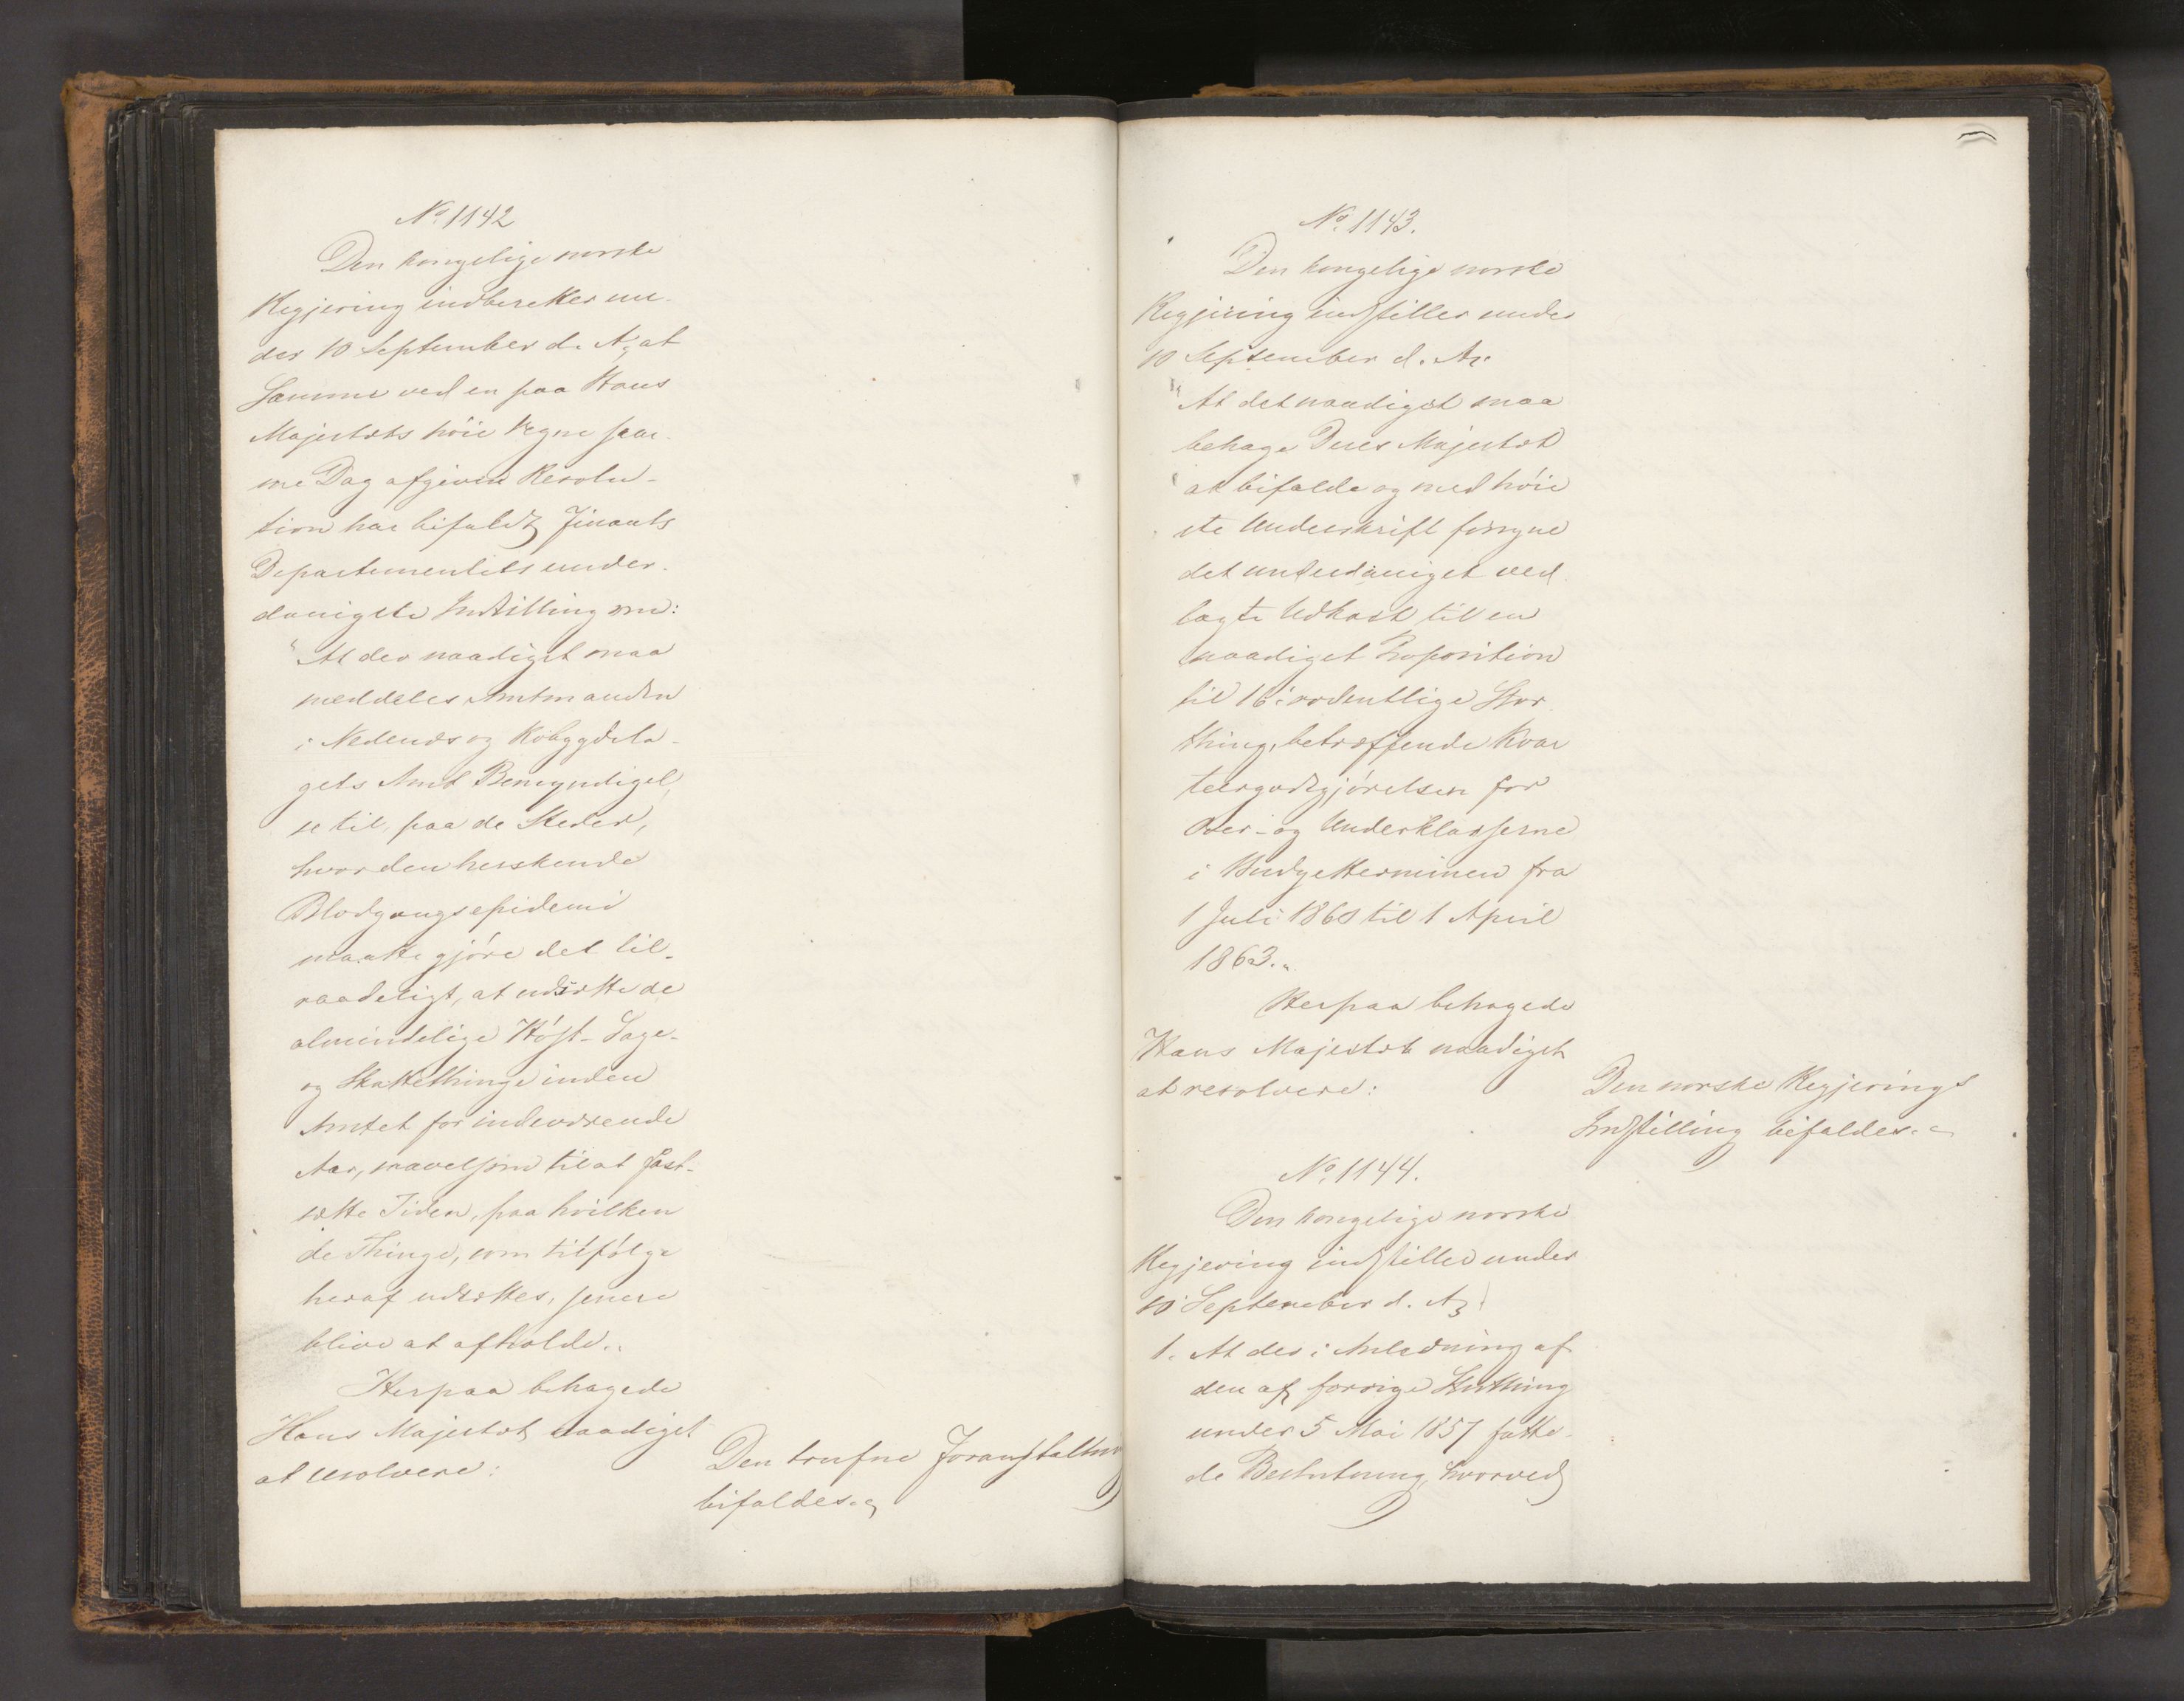 No. 1142
Den kongelige norske
Regjering indberetter un-
der 10 September d. A, at
Samme ved en paa Hans
Majestæts höie Vegne sam-
me Dag afgiven Resolu-
tion har bifaldt Finants
Departementets under-
danigste Indstilling om:
"At der naadigst maa
meddeles Amtmanden
i Nedenæs og Robygdela-
gets Amt Bemyndigel-
se til, paa de Steder,
hvor den herskende
Blodgangsepidemi
maatte gjöre det til-
raadeligt, at udsætte de
almindelige Höst- Sage-
og Skattethinge inden
Amtet for indeværende
Aar, saavelsom til at fast-
sætte Tiden, paa hvilken
de Thinge, som tilfölge
heraf udsættes, senere
blive at afholde."
Herpaa behagede
Hans Majestæt naadigst
at resolvere:
Den trufne Foranstaltning
bifaldes.
No. 1143.
Den kongelige norske
Regjering indstiller under
10 September d. A.:
"At det naadigst maa
behage Deres Majestæt
at bifalde og med höie-
ste Underskrift forsyne
det underdanigst ved
lagte Udkast til en
naadigst Proposition
til 16de ordentlige Stor
thing, betræffende Kvar
teergodtgjörelsen for
Over- og Underklasserne
i Budgetterminen fra
1 Juli 1860 til 1 April
1863."
Herpaa behagede
Hans Majestæt naadigst
at resolvere:
Den norske Regjerings
Indstilling bifaldes.
No. 1144.
Den kongelige norske
Regjering indstiller under
10 September d. A:
1. At der i Anledning af
den af forrige Storthing
under 5 Mai 1857 fatte-
de Beslutning, hvorved